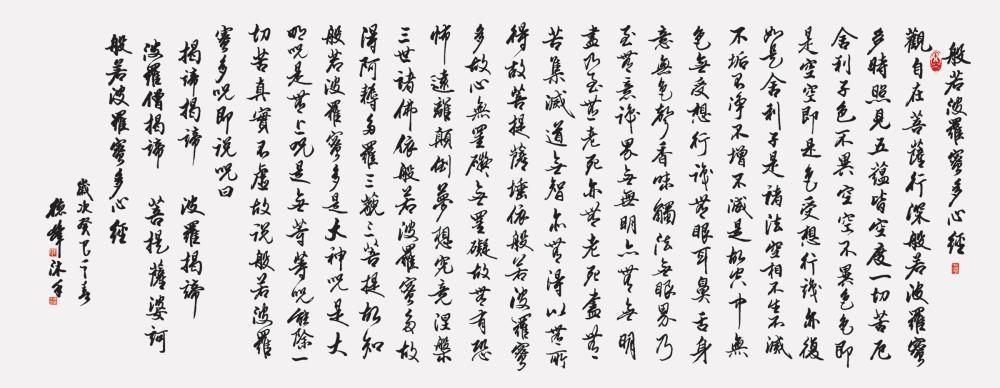 般若波羅蜜多心經
觀自在菩薩行深般若波羅蜜
多時照見五蘊皆空度一切苦厄
舍利子色不異空空不異色色即
是空空即是色受想行識亦復
如是舍利子是諸法空相不生不滅
不垢不淨不增不減是故空中無
色無受想行識無眼耳鼻舌身
意無色聲香味觸法無眼界乃
至無意識界無無明亦無無明
盡乃至無老死亦無老死盡無
苦集滅道無智亦無得以無所
得故菩提薩埵依般若波羅蜜
多故心無罣礙無罣礙故無有恐
怖遠離顛倒夢想究竟涅槃
三世諸佛依般若波羅蜜多故
得阿耨多羅三藐三菩提故知
般若波羅蜜多是大神咒是大
明咒是無上咒是無等等咒能除一
切苦真實不虛故說般若波羅
蜜多咒即說咒曰
揭諦揭諦 波羅揭諦
波羅僧揭諦 菩提薩婆訶
般若波羅蜜多心經
歲次癸巳
沐手